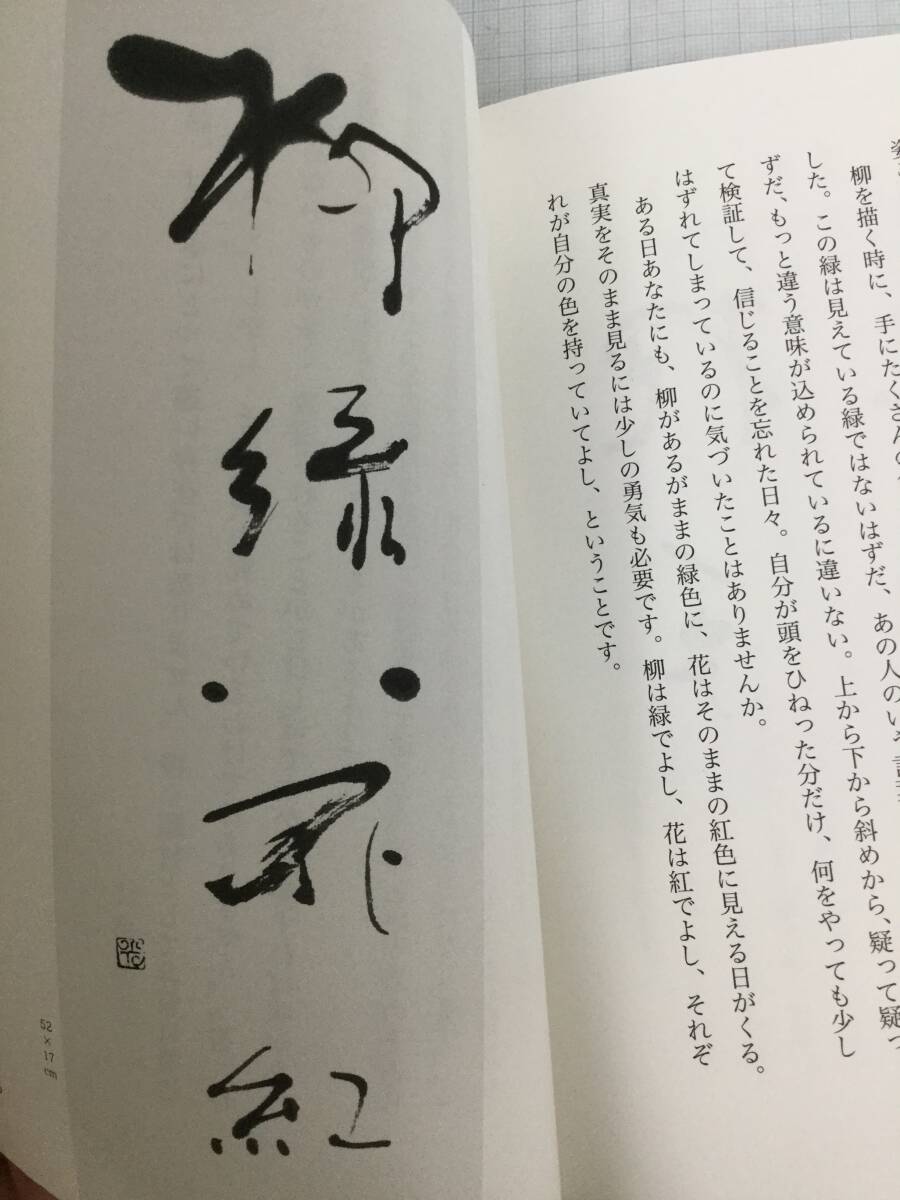 柳を描く時に、手にたくさんの
した。この緑は見えている緑ではないはずだ、あの人の
ずだ、もっと違う意味が込められているに違いない。上から下から斜めから、疑って疑っ
て検証して、信じることを忘れた日々。自分が頭をひねった分だけ、何をやっても少し
はずれてしまっているのに気づいたことはありませんか。
ある日あなたにも、柳があるがままの緑色に、花はそのままの紅色に見える日がくる。
真実をそのまま見るには少しの勇気も必要です。柳は緑でよし、花は紅でよし、それぞ
れが自分の色を持っていてよし、ということです。
柳緑花紅
52×17cm